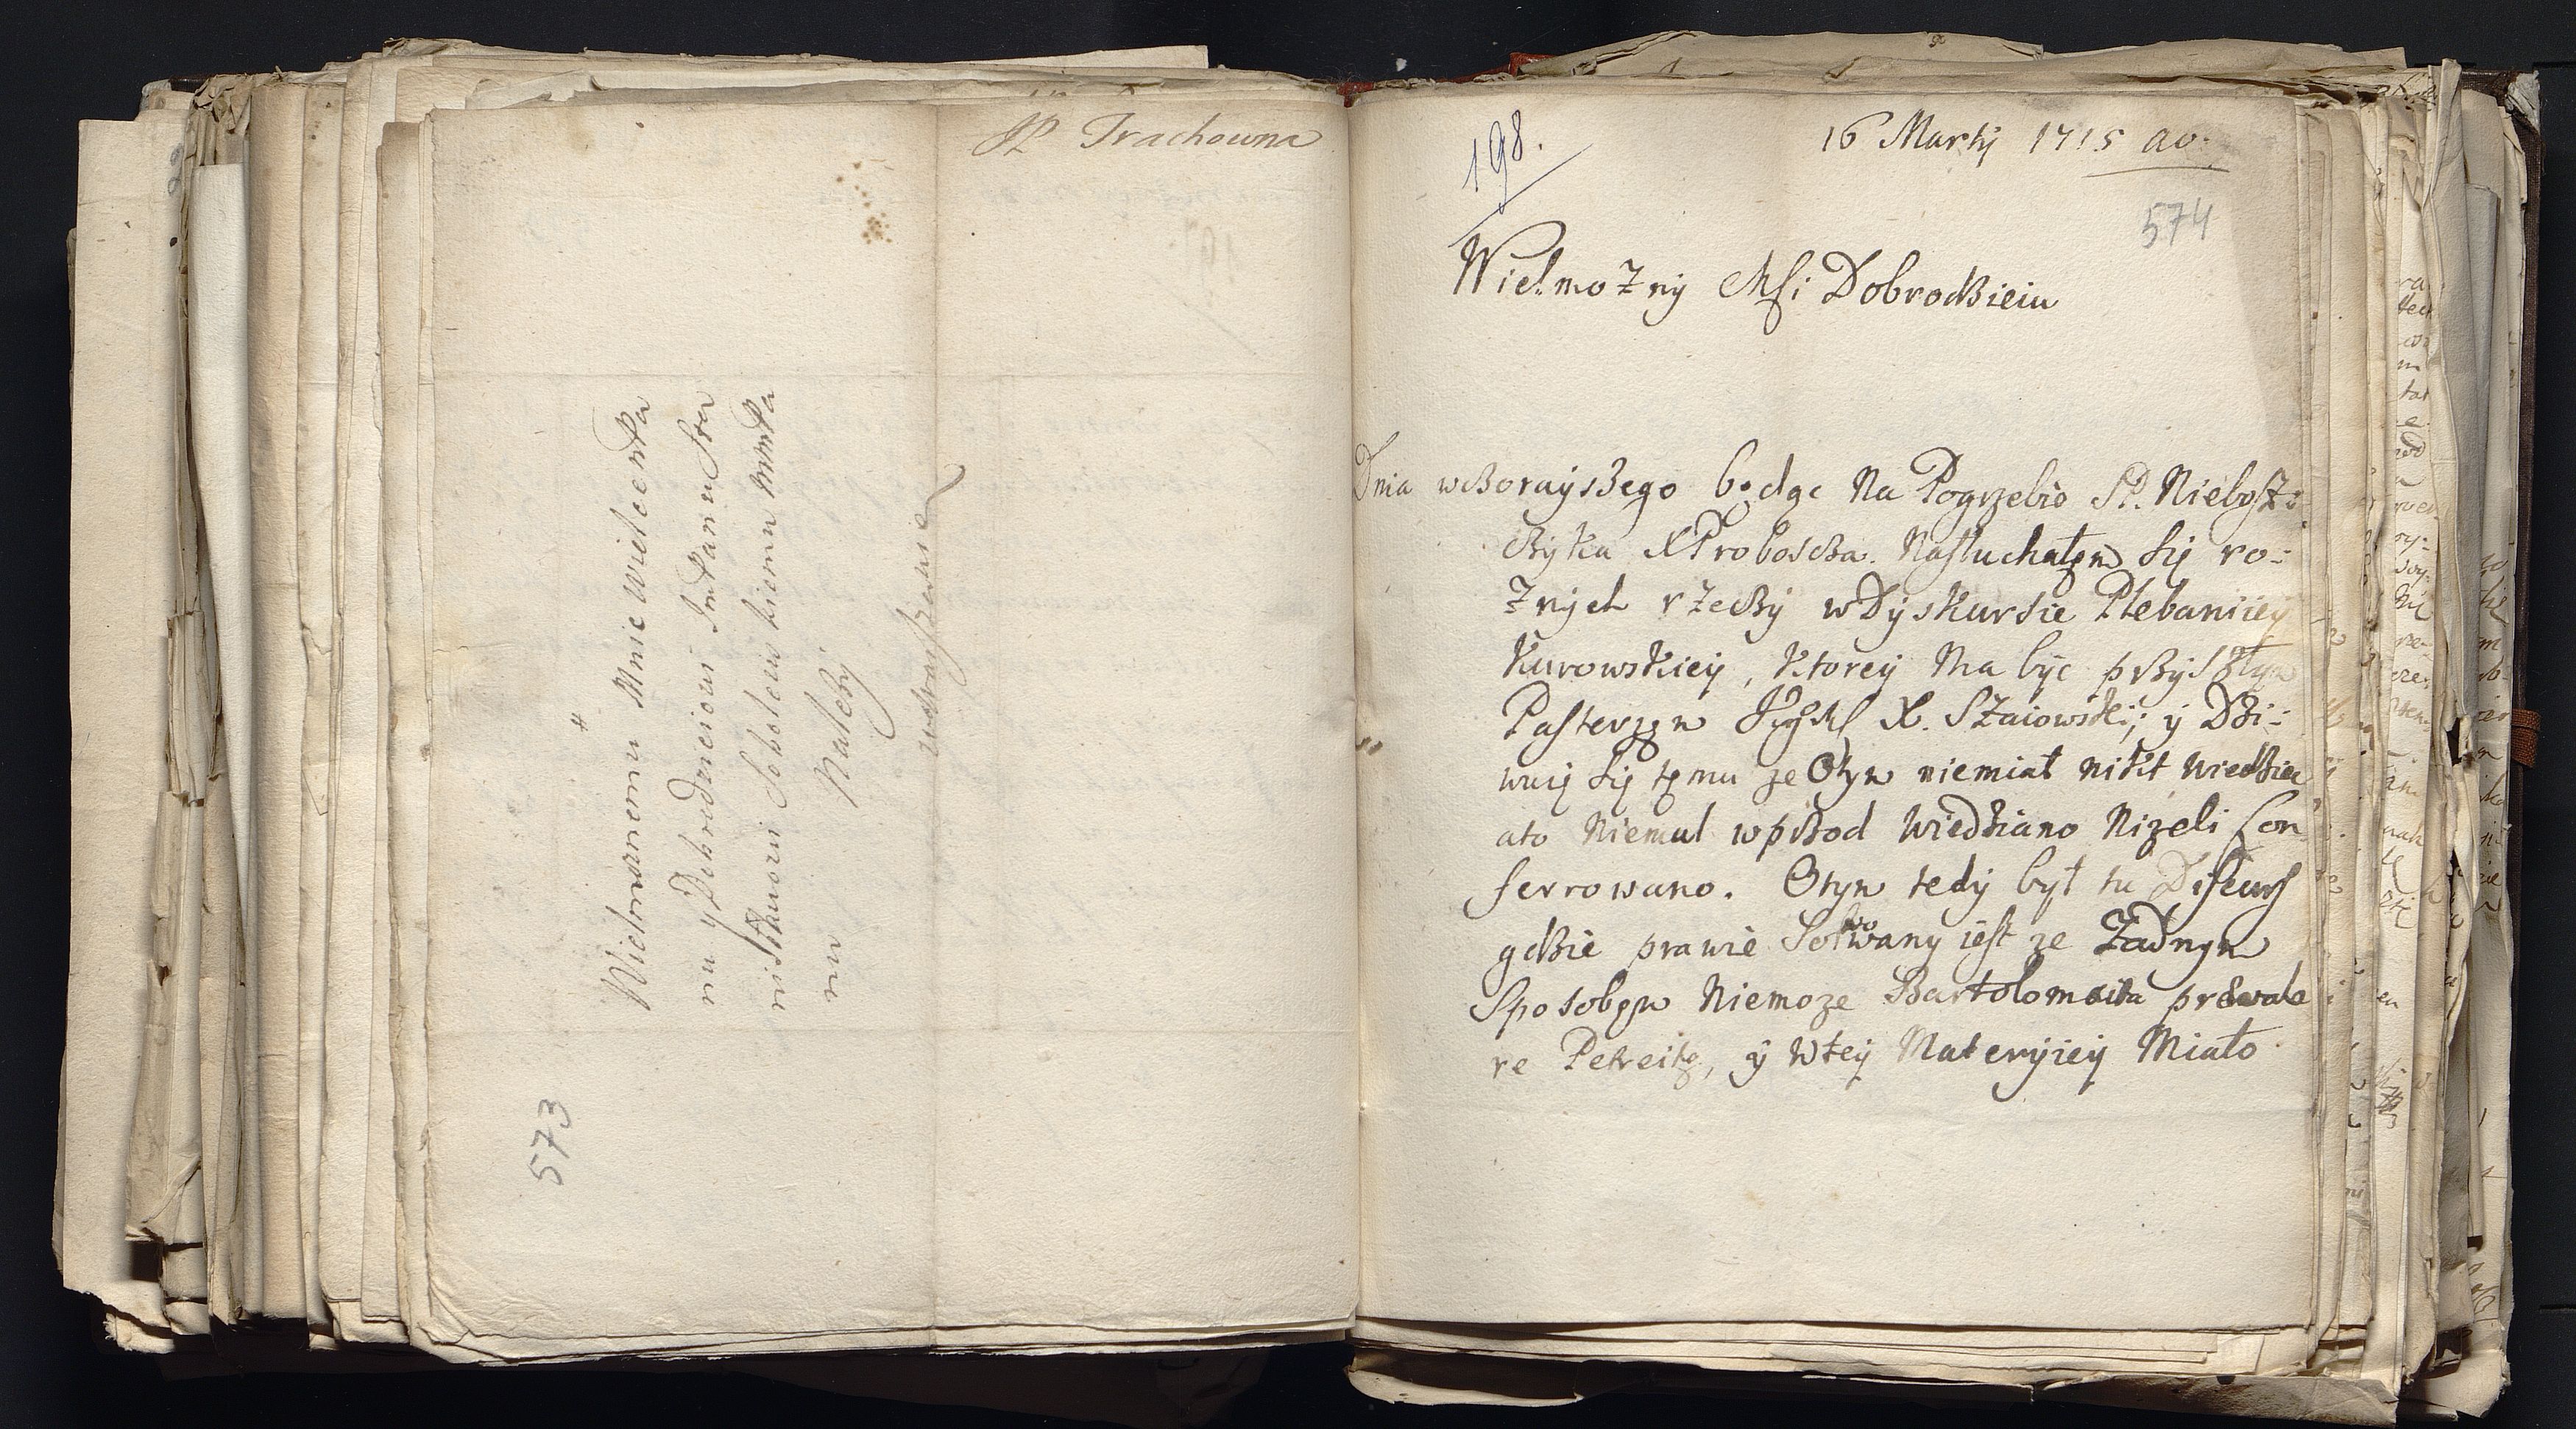 JP Trachowna
Wielmożnemu Mnie Wielce
nu y Dobrodzieiowi
Należy
573
198.
16 Martij 1715 ao.
574
Wielmożny Msi Dobrodzieiu
Dnia wczorayszego będąc Na Pogrzebie SP. Niebosz:
czyka XProboscza. Nasłuchałem się ro:
żnych rzeczy w Dyskursie Plebaniiey
Kurowskiey, Ktorey ma być przyszłym
Pasterzem X. Szaiowski; y Dzi:
wuię się temu że Otym niemiał nikt Wiedzieć
ato Niemal wprzod Wiedziano Niżeli Con
ferrowano. Otym tedy był tu Discurs
gdzie prawie iest że Żadnym
Sposobem Niemoże Bartolomeita prævale
re Petreitę, y Wtey Materyiey Miało